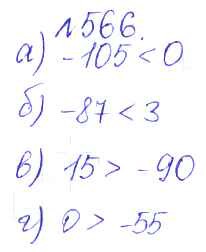 №566.
а) -105 < 0
б) -87 < 3
в) 15 > -90
г) 0 > -55